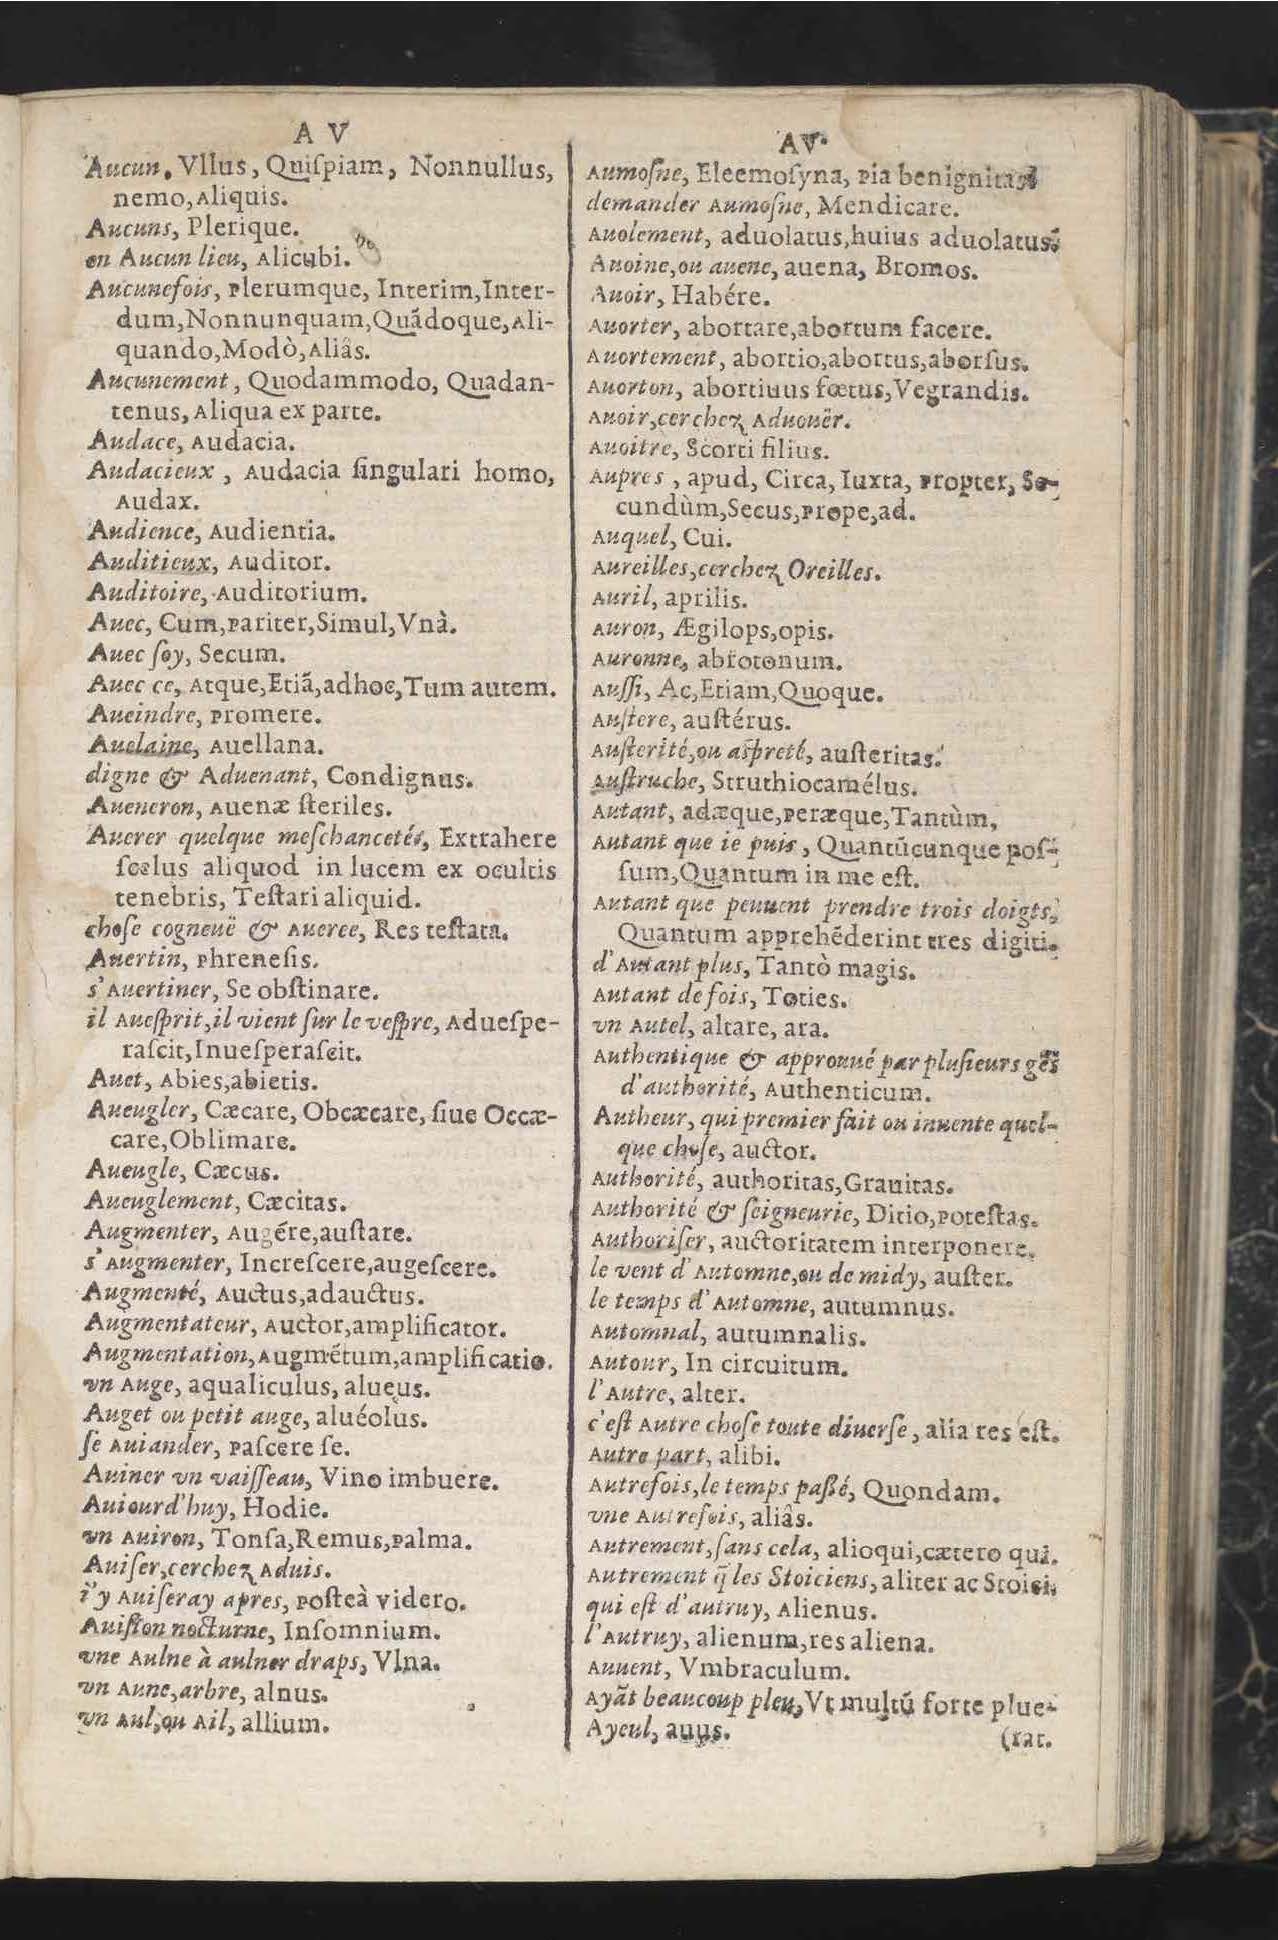 A V
Aucun. Vllus, Quiſpiam, Nonnullus,
nemo, Aliquis.
Aucuns, Plerique.
en Aucun lieu, Alicubi.
Aucunefois, Plerumque, Interim, Inter-
dum, Nonnunquam, Quãdoque, Ali-
quando, Modò, Aliâs.
Aucunement, Quodammodo, Quadan-
tenus, Aliqua ex parte.
Audace, Audacia.
Audacieux, Audacia ſingulari homo,
Audax.
Audience, Audientia.
Auditieux, Auditor.
Auditoire, Auditorium.
Auec, Cum, Pariter, Simul, Vnà.
Auec ſoy, Secum.
Auec ce, Atque, Etiã, adhoc, Tum autem.
Aueindre, Promere.
Auelaine, Auellana.
digne & Aduenant, Condignus.
Aueneron, Auenæ ſteriles.
Auerer quelque meſchancetés, Extrahere
ſcelus aliquod in lucem ex ocultis
tenebris, Teſtari aliquid.
choſe cogneuë & Aueree, Res teſtata.
Auertin, Phreneſis.
s'Auertiner, Se obſtinare.
il Aueſprit, il vient ſur le veſpre, Adueſpe-
raſcit, Inueſperaſcit.
Auet, Abies, abietis.
Aueugler, Cæcare, Obcæcare, ſiue Occæ-
care, Oblimare.
Aueugle, Cæcus.
Aueuglement, Cæcitas.
Augmenter, Augére, auſtare.
s'Augmenter, Increſcere, augeſcere.
Augmenté, Auctus, adauctus.
Augmentateur, Auctor, amplificator.
Augmentation, Augmẽtum, amplificatio.
vn Auge, aqualiculus, alueus.
Auget ou petit auge, aluéolus.
ſe Auiander, Paſcere ſe.
Auiner vn vaiſſeau, Vino imbuere.
Auiourd'huy, Hodie.
vn Auiron, Tonſa, Remus, Palma.
Auiſer, cerchez Aduis.
i'y Auiſeray apres, Poſteà videro.
Auiſion nocturne, Inſomnium.
vne Aulne à aulner draps, Vlna.
vn Aune, arbre, alnus.
vn Aul, ou Ail, allium.
AV.
Aumoſne, Eleemoſyna, Pia benignitas
demander Aumoſne, Mendicare.
Auolement, aduolatus, huius aduolatus.
Auoine, ou auene, auena, Bromos.
Auoir, Habére.
Auorter, abortare, abortum facere.
Auortement, abortio, abortus, aborſus.
Auorton, abortiuus fœtus, Vegrandis.
Auoir, cerchez Aduouër.
Auoitre, Scorti filius.
Aupres, apud, Circa, Iuxta, Propter, Se-
cundùm, Secus, Prope, ad.
Auquel, Cui.
Aureilles, cerchez Oreilles.
Auril, aprilis.
Auron, Ægilops, opis.
Auronne, abrotonum.
Auſſi, Ac, Etiam, Quoque.
Auſtere, auſtérus.
Auſterité, ou aſpreté, auſteritas.
Auſtruche, Struthiocamélus.
Autant, adæque, Peræque, Tantùm,
Autant que ie puis, Quantũcunque poſ-
ſum, Quantum in me eſt.
Autant que peuuent prendre trois doigts,
Quantum apprehẽderint tres digiti.
d'Autant plus, Tantò magis.
Autant de fois, Toties.
vn Autel, altare, ara.
Authentique & approuué par pluſieurs gẽs
d'authorité, Authenticum.
Autheur, qui premier fait ou inuente quel-
que choſe, auctor.
Authorité, authoritas, Grauitas.
Authorité & ſeigneurie, Ditio, Poteſtas.
Authoriſer, auctoritatem interponere.
le vent d'Automne, ou de midy, auſter.
le temps d'Automne, autumnus.
Automnal, autumnalis.
Autour, In circuitum.
l'Autre, alter.
c'eſt Autre choſe toute diuerſe, alia res eſt.
Autre part, alibi.
Autrefois, le temps paßé, Quondam.
vne Autrefois, aliâs.
Autrement, ſans cela, alioqui, cætero qui.
Autrement q̃ les Stoiciens, aliter ac Stoici.
qui eſt d'autruy, Alienus.
l'Autruy, alienum, res aliena.
Auuent, Vmbraculum.
Ayãt beaucoup pleu, Vt multũ forte plue-
Ayeul, auus. (rat.